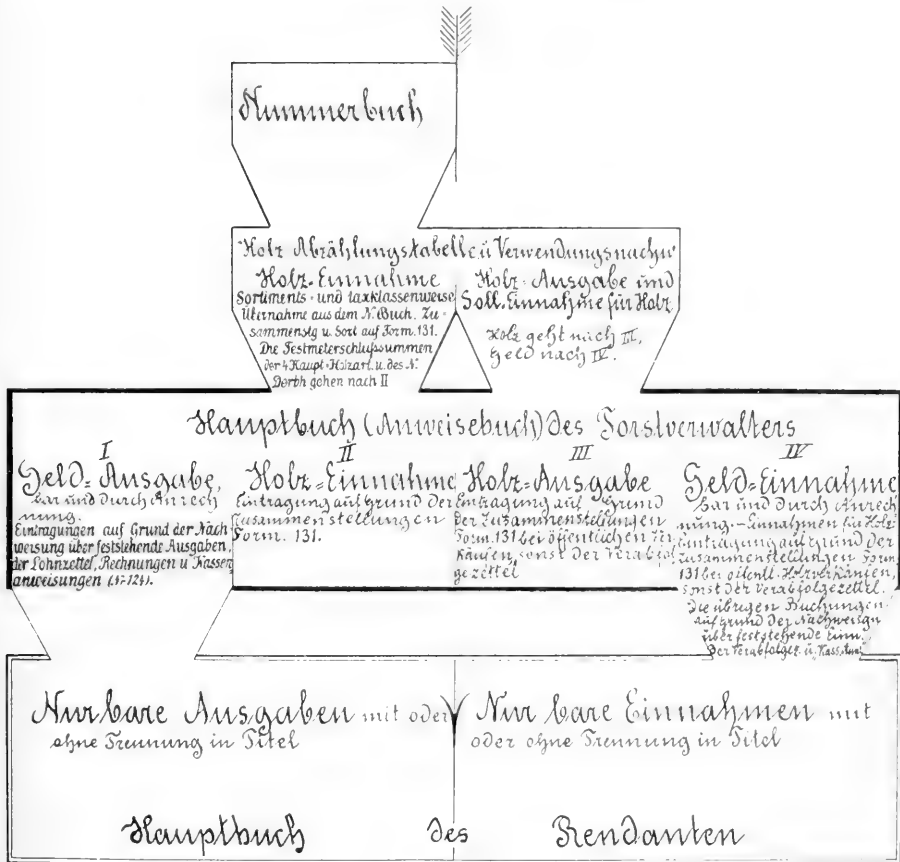 Nummerbuch
Holz Abzählungstabelle u Verwendungsnachw
Holz-Einnahme
Sortiments- und taxklassenweise
Übernahme aus dem N. Buch. Zu-
sammenstg u. Sort auf Form. 131.
Die Festmeterschlußsummen
der 4 Haupt-Holzart. u. des N.
Derbh gehen nach II
Holz-Ausgabe und
Soll-Einnahme für Holz.
Holz geht nach III,
Geld nach IV.
Hauptbuch (Anweisebuch) des Forstverwalters
I
Geld-Ausgabe,
bar und durch Anrech
nung.
Eintragungen auf Grund der Nach
weisung über feststehende Ausgaben,
der Lohnzettel, Rechnungen u Kassen
anweisungen
II
Holz-Einnahme
Eintragung auf Grund der
Zusammenstellungen
Form. 131.
III
Holz-Ausgabe
Eintragung auf Grund
der Zusammenstellungen
Form. 131 bei öffentlichen Ver
käufen, sonst der Verabfol
gezettel
IV
Geld-Einnahme
bar und durch Anrech
nung.-Einnahmen für Holz
Eintragung auf Grund der
Zusammenstellungen Form.
131 bei öffentl. Holzverkäufen,
sonst der Verabfolgezettel.
Die übrigen Buchungen
auf Grund der Nachweisgn
über feststehende Einn.
der Verabfolgez. u. Kass.
Nur bare Ausgaben mit oder
ohne Trennung in Titel
Nur bare Einnahmen mit
oder ohne Trennung in Titel
Hauptbuch des Rendanten